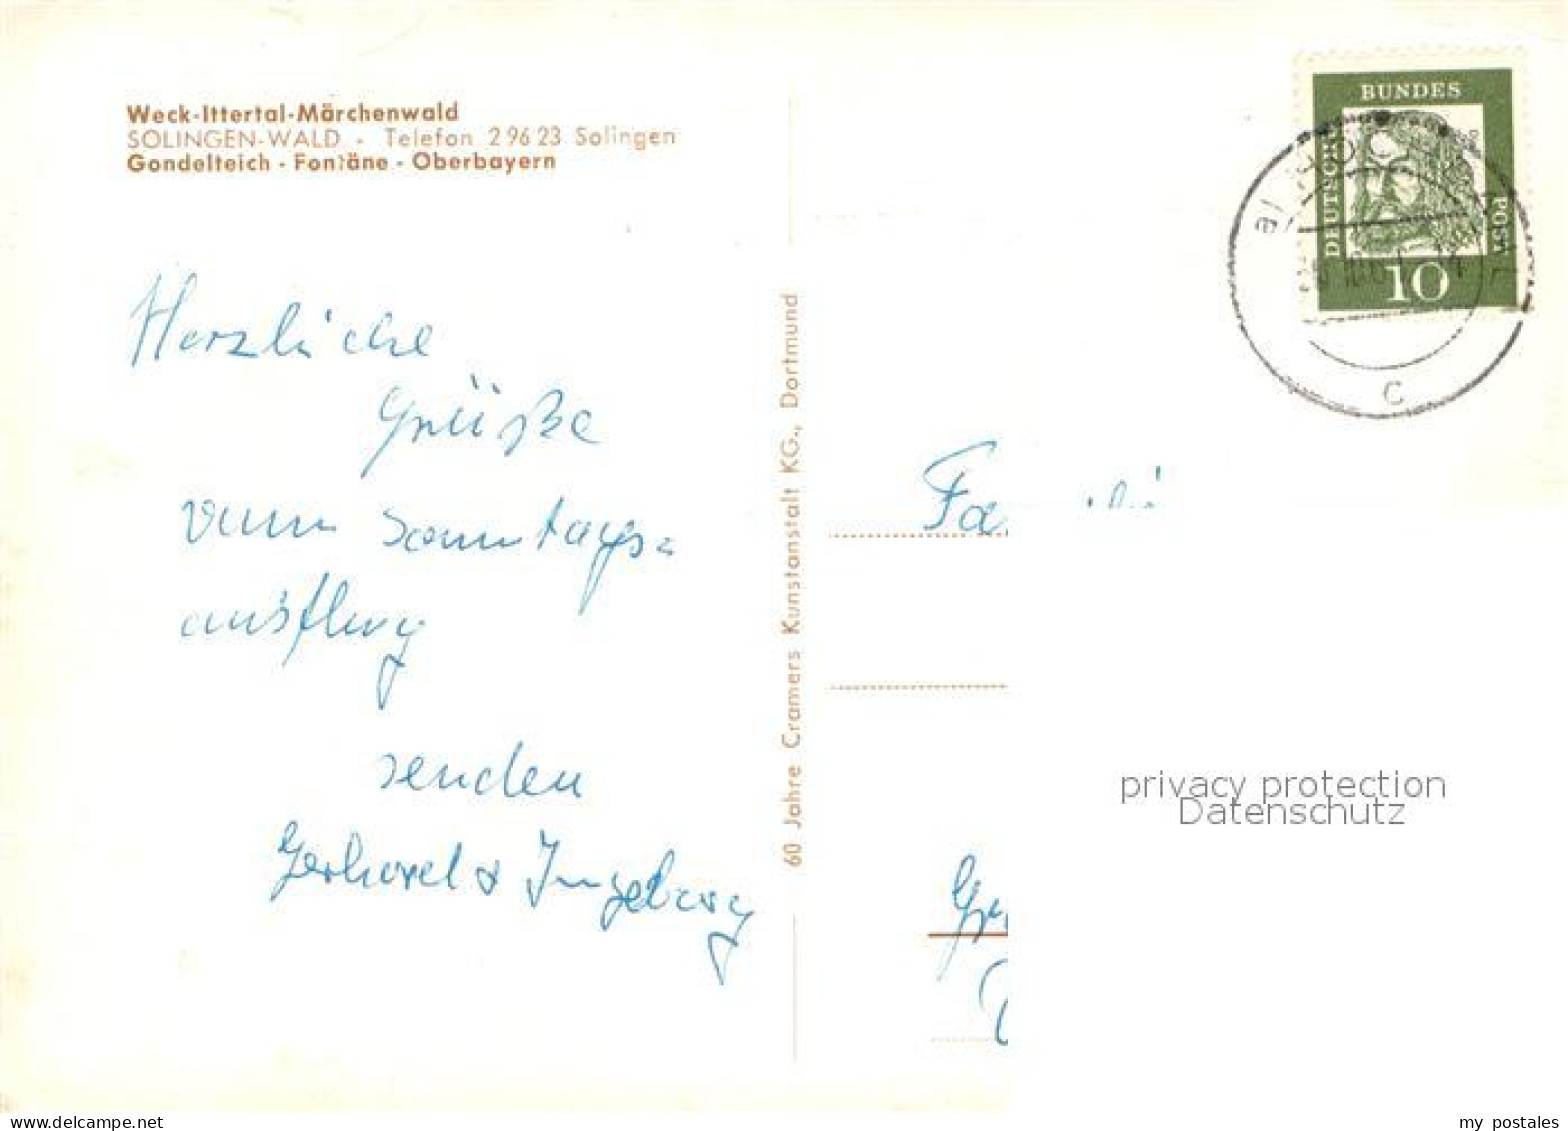 Weck-Ittertal-Märchenwald
SOLINGEN-WALD - Telefon 2 96 23 Solingen
Gondelteich - Fontäne - Oberbayern
Herzliche
Grüße
vom Sonntags=
ausflug
senden
Gerhard & Ingeborg
60 Jahre Cramers Kunstanstalt KG., Dortmund
DEUTSCHE
BUNDES
POST
10
c
privacy protection
Datenschutz
delcampe.net
my_postales